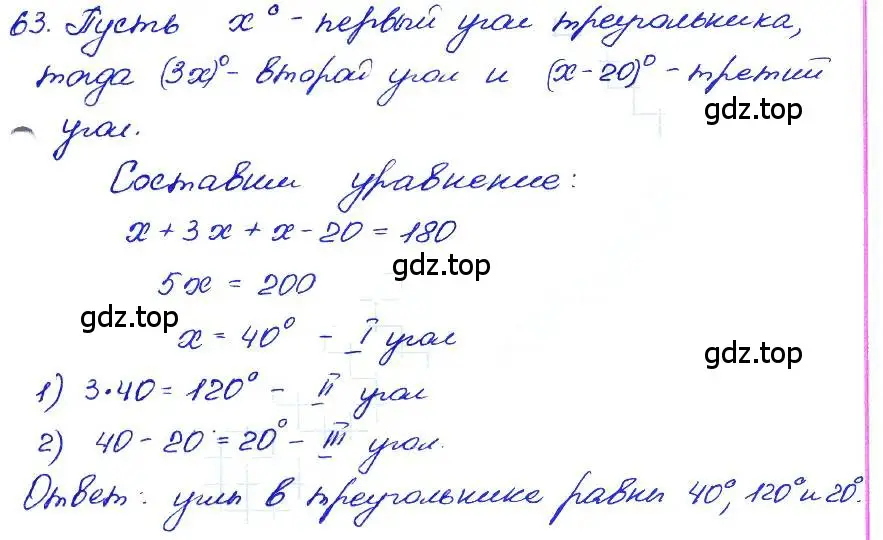 63. Пусть x° - первый угол треугольника,
тогда (3x)° - второй угол и (x-20)° - третий
gdz.top
угол.
Составим уравнение:
x + 3x + x - 20 = 180
gdz.top
5x = 200
gdz.top
x = 40° - I угол
gdz.top
1) 3·40 = 120° - II угол
2) 40 - 20 = 20° - III угол.
Ответ: углы в треугольнике равны 40°, 120° и 20°.